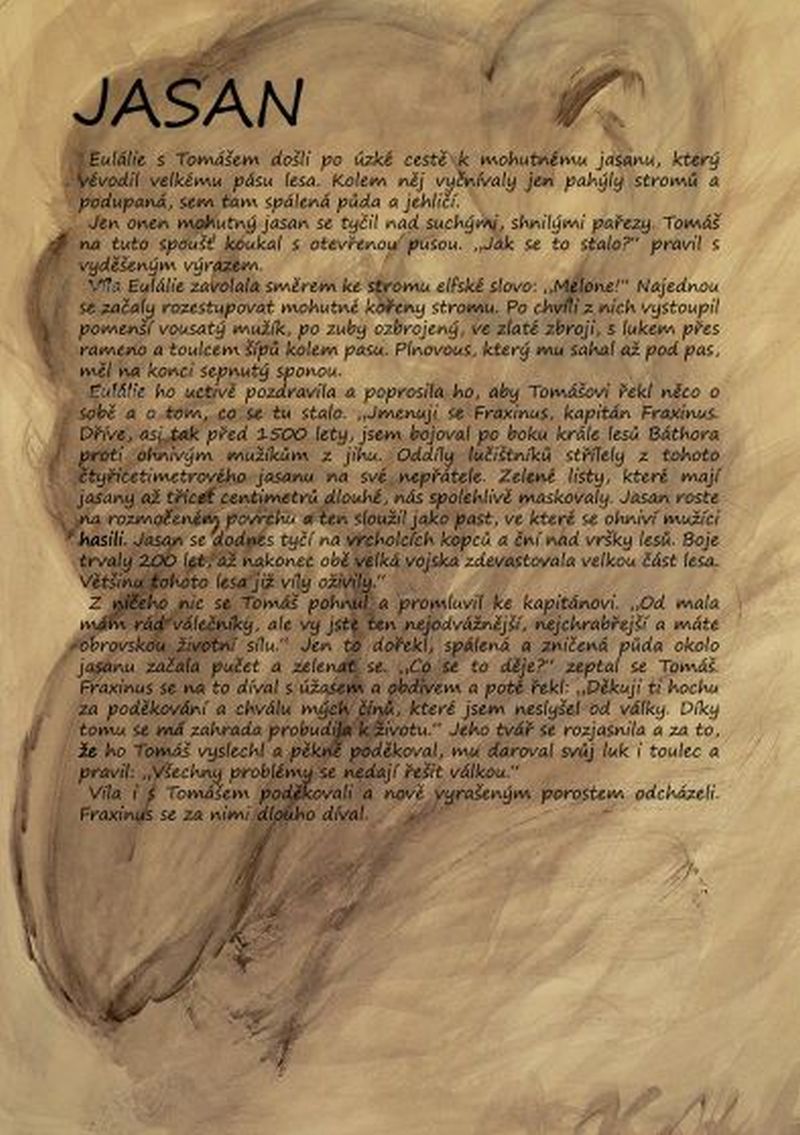 JASAN
Eulálie s Tomášem došli po úzké cestě k mohutnému jasanu, který
vévodil velkému pásu lesa. Kolem něj vyčnívaly jen pahýly stromů a
podupaná, sem tam spálená půda a jehličí.
Jen onen mohutný jasan se tyčil nad suchými, shnilými pařezy. Tomáš
na tuto spoušť koukal s otevřenou pusou. „Jak se to stalo?" pravil s
vyděšeným výrazem.
Víla Eulálie zavolala směrem ke stromu elfské slovo: „Melone!" Najednou
se začaly rozestupovat mohutné kořeny stromu. Po chvíli z nich vystoupil
pomenší vousatý mužík, po zuby ozbrojený, ve zlaté zbroji, s lukem přes
rameno a toulcem šípů kolem pasu. Plnovous, který mu sahal až pod pas,
měl na konci sepnutý sponou.
Eulálie ho uctivě pozdravila a poprosila ho, aby Tomášovi řekl něco o
sobě a o tom, co se tu stalo. „Jmenuji se Fraxinus, kapitán Fraxinus.
Dříve, asi tak před 1500 lety, jsem bojoval po boku krále lesů Báthora
proti ohnivým mužíkům z jihu. Oddíly lučištníků střílely z tohoto
čtyřicetimetrového jasanu na své nepřátele. Zelené listy, které mají
jasany až třicet centimetrů dlouhé, nás spolehlivě maskovaly. Jasan roste
na rozmočeném povrchu a ten sloužil jako past, ve které se ohniví mužíci
hasili. Jasan se dodnes tyčí na vrcholcích kopců a ční nad vršky lesů. Boje
trvaly 200 let, až nakonec obě velká vojska zdevastovala velkou část lesa.
Většinu tohoto lesa již víly oživily."
Z ničeho nic se Tomáš pohnul a promluvil ke kapitánovi. „Od mala
mám rád válečníky, ale vy jste ten nejodvážnější, nejchrabřejší a máte
obrovskou životní sílu." Jen to dořekl, spálená a zničená půda okolo
jasanu začala pučet a zelenat se. „Co se to děje?" zeptal se Tomáš.
Fraxinus se na to díval s úžasem a obdivem a poté řekl: „Děkuji ti hochu
za poděkování a chválu mých činů, které jsem neslyšel od války. Díky
tomu se má zahrada probudila k životu." Jeho tvář se rozjasnila a za to,
že ho Tomáš vyslechl a pěkně poděkoval, mu daroval svůj luk i toulec a
pravil: „Všechny problémy se nedají řešit válkou."
Víla i s Tomášem poděkovali a nově vyrašeným porostem odcházeli.
Fraxinus se za nimi dlouho díval.